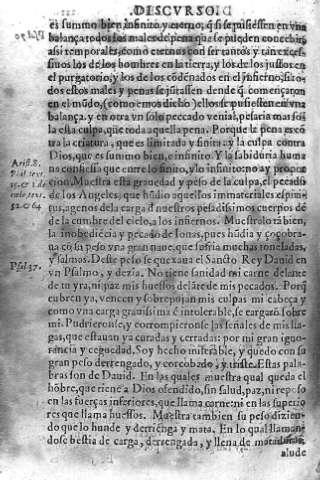 .DISCVRSO I.
es summo bien infinito y eterno, q̃ si se pusiessen en vna
balança todos los males de pena que se pueden concebir
assi temporales, como eternos con ser tantos y tan excessi-
uos los de los hombres en la tierra, y los de los justos en
el purgatorio, y los de los cõdenados en el Infierno, si to-
dos estos males y penas se jutassen dende q̃ començaron
en el mũdo, (como emos dicho) ellos se pusiesten en vna
balança, y en otra vn solo peccado venial, pesaria mas so-
la esta culpa, que toda aquella pena. Porque la pena es cõ
tra la criatura, que es limitada y finita: y la culpa contra
Dios, que es summo bien, e infinito. Y la sabiduria huma
na confiessa que entre lo finito, y lo infinito: no ay propor
cion. Muestra esta grauedad y peso de la culpa, el pecado
de los Angeles, que hũdio aquellos immateriales espiri-
tus, agenos de la carga d̃ nuestros pesadissimos cuerpos dẽ
de la cumbre del cielo, a los infiernos. Muestralo tãbien,
la inobediẽcia y pecado de Ionas, pues hũdia y çoçobra-
ua cõ su peso vna gran naue, que sufria muchas toneladas,
y salmas. Deste peso se quexaua el Sancto Rey Dauid en
vn Psalmo, y dezia. No tiene sanidad mi carne delante
de tu yra, ni paz mis huessos delãte de mis pecados. Porq̃
cubren ya, vencen y sobrepojan mis culpas mi cabeça y
como vna carga grauissima e intolerable, se cargarõ sobre
mi. Pudrieronse, y corrompieronse las señales de mis lla-
gas, que estauan ya curadas y cerradas: por mi gran igno-
rancia y ceguedad. Soy hecho miserable, y quedo con su
gran peso derrengado, y corcobado, y triste. Estas pala-
bras son de Dauid. En las quales muestra qual queda el
hõbre, que tiene a Dios ofendido, sin salud, paz, ni repo-
so en las fuerças inferiores, que llama carne: ni en las superio
res que llama huessos. Muestra tambien su peso dizien-
do que lo hunde y derrienga y mata. En lo qual llaman-
dose bestia de carga, derrengada, y llena de mataduras,
alude
Arist. 8.
Psal. 37.